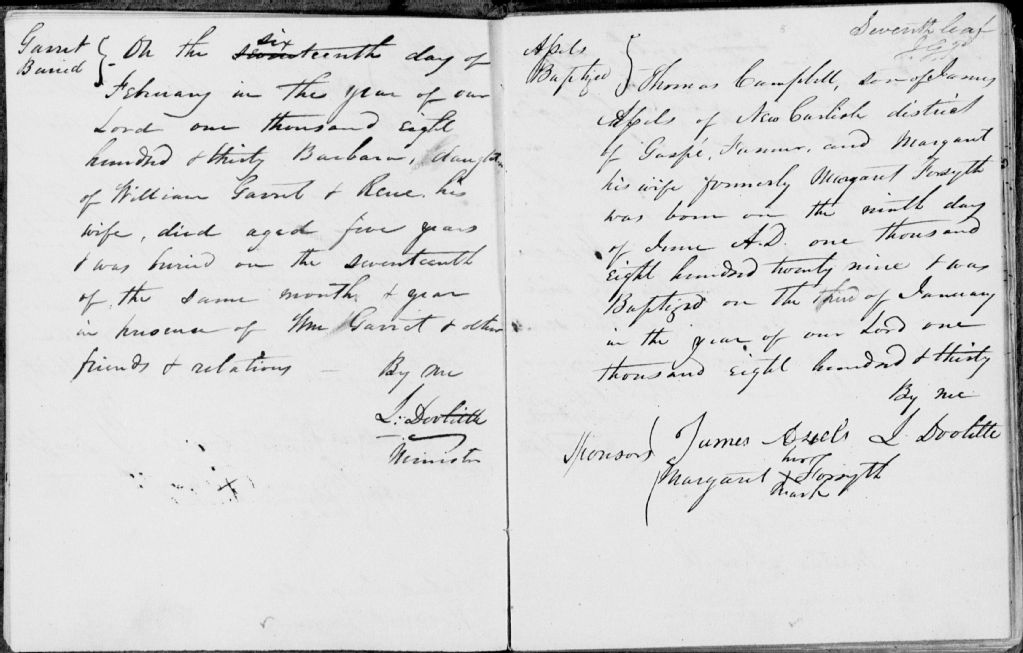 Garret
Buried
On the six seventeenth day of
February in the year of our
Lord one thousand eight
hundred & thirty Barbara, daughter
of William Garret & Rene his
wife, died aged five years
& was buried on the seventeenth
of the same month & year
in presence of Wm Garret & other
friends & relations — By me
L. Doolittle
Minister
Seventh leaf
Apels
Baptized
Thomas Campbell, son of James
Apels of New Carlisle district
of Gaspé, Farmer, and Margaret
his wife formerly Margaret Forsyth
was born on the ninth day
of June A.D. one thousand
eight hundred twenty nine & was
Baptized on the third of January
in the year of our Lord one
thousand eight hundred & thirty
By me
Sponsors James Apels L. Doolittle
her
Margaret X Forsyth
mark